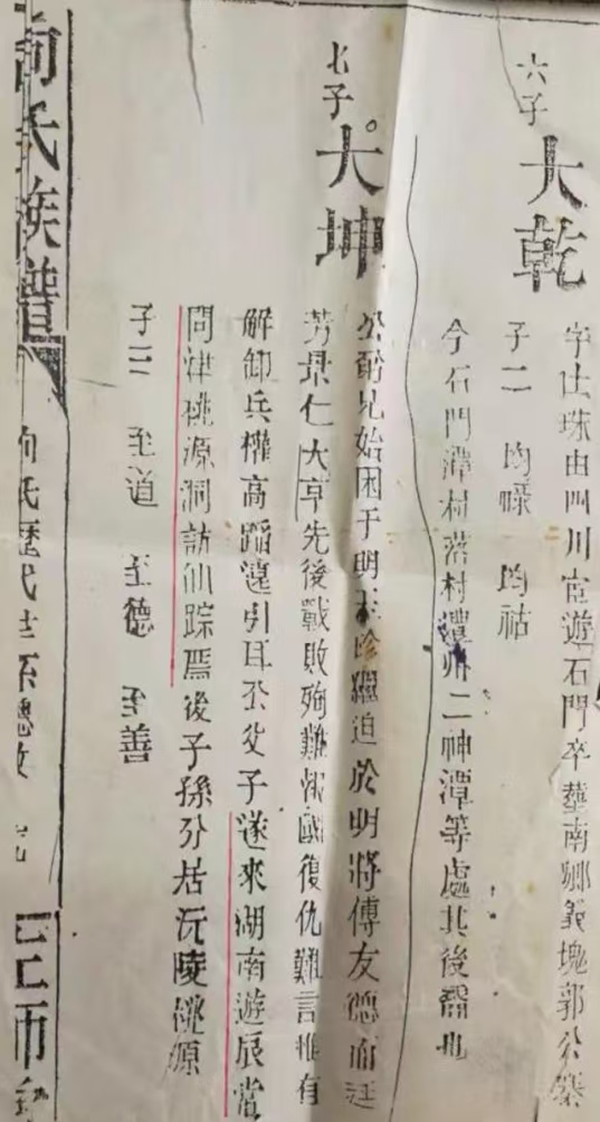 六子 大乾
字仕珠由四川宦遊石門卒葬南鄉義塊郭公
子二 均 均祜
今石門潭村落村澧州二神潭等處其後裔也
七子 大坤
公弱兄始困于明玉珍繼迫於明將傅友德而廷
芳景仁大亨先後戰敗殉難報國復仇難言惟有
解卸兵權高蹈遠引耳公父子遂來湖南遊辰常
問津桃源洞訪仙踪焉後子孫分居沅陵桃源
子三 至道 至德 至善
向氏族譜 向氏歷代世系總